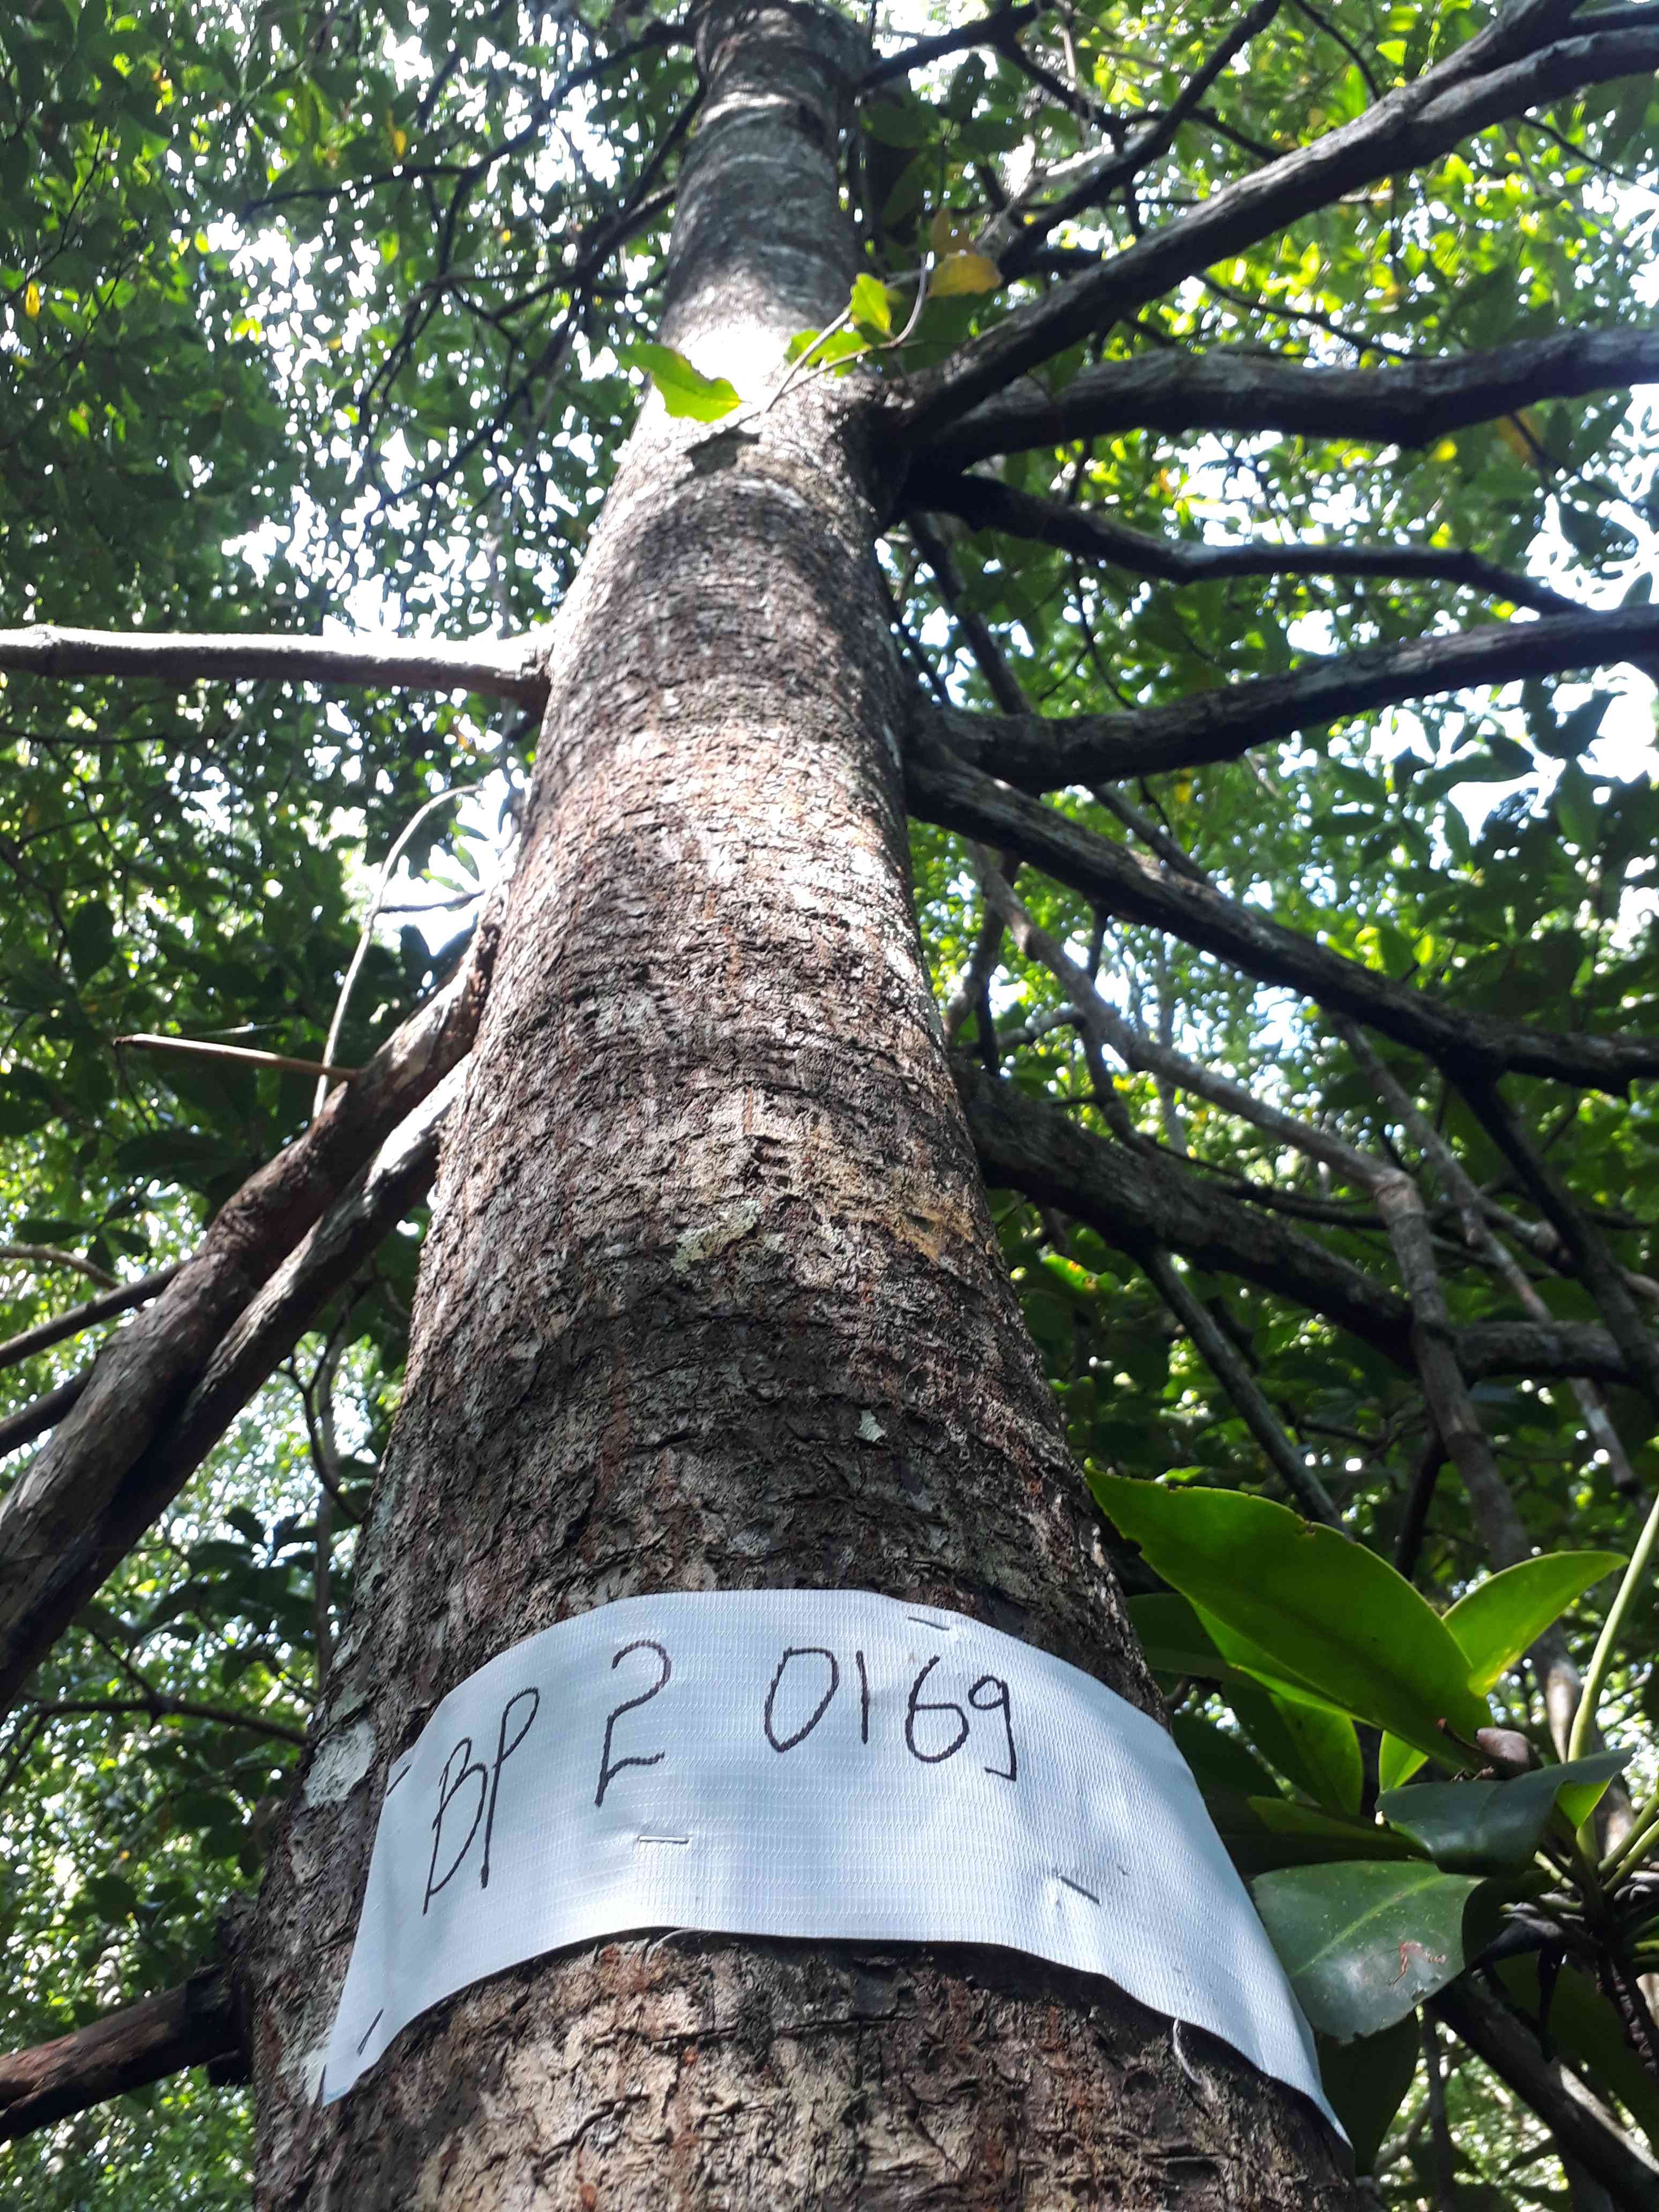 BP 2 0169